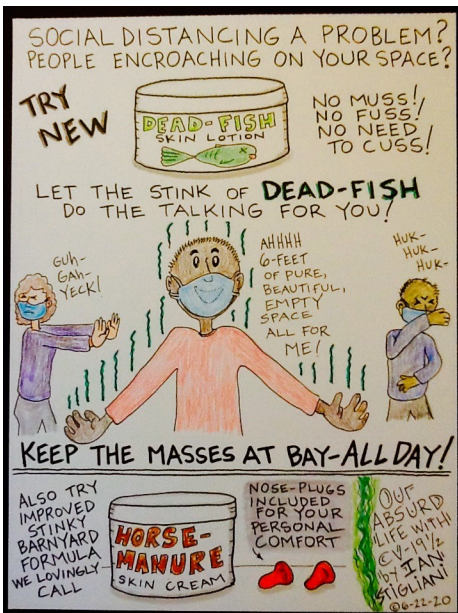 SOCIAL DISTANCING A PROBLEM?
PEOPLE ENCROACHING ON YOUR SPACE?
TRY
NEW
DEAD-FISH
SKIN LOTION
NO MUSS!
NO FUSS!
NO NEED
TO CUSS!
LET THE STINK OF DEAD-FISH
DO THE TALKING FOR YOU!
GUH-
GAH-
YECK!
AHHHH
6-FEET
OF PURE,
BEAUTIFUL,
EMPTY
SPACE
ALL FOR
ME!
HUK-
HUK-
HUK-
KEEP THE MASSES AT BAY-ALL DAY!
ALSO TRY
IMPROVED
STINKY
BARNYARD
FORMULA
WE LOVINGLY
CALL
HORSE-
MANURE
SKIN CREAM
NOSE-PLUGS
INCLUDED
FOR YOUR
PERSONAL
COMFORT
OUR
ABSURD
LIFE WITH
CV-19½
by IAN
STIGLIANI
©6-22-20